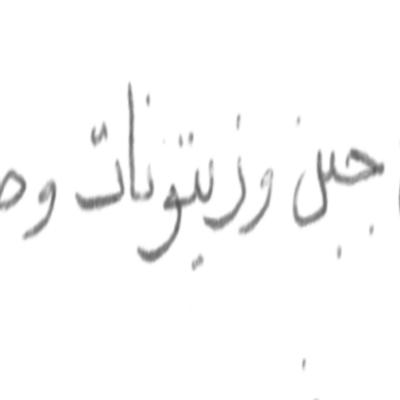 جبن وزيتونات و